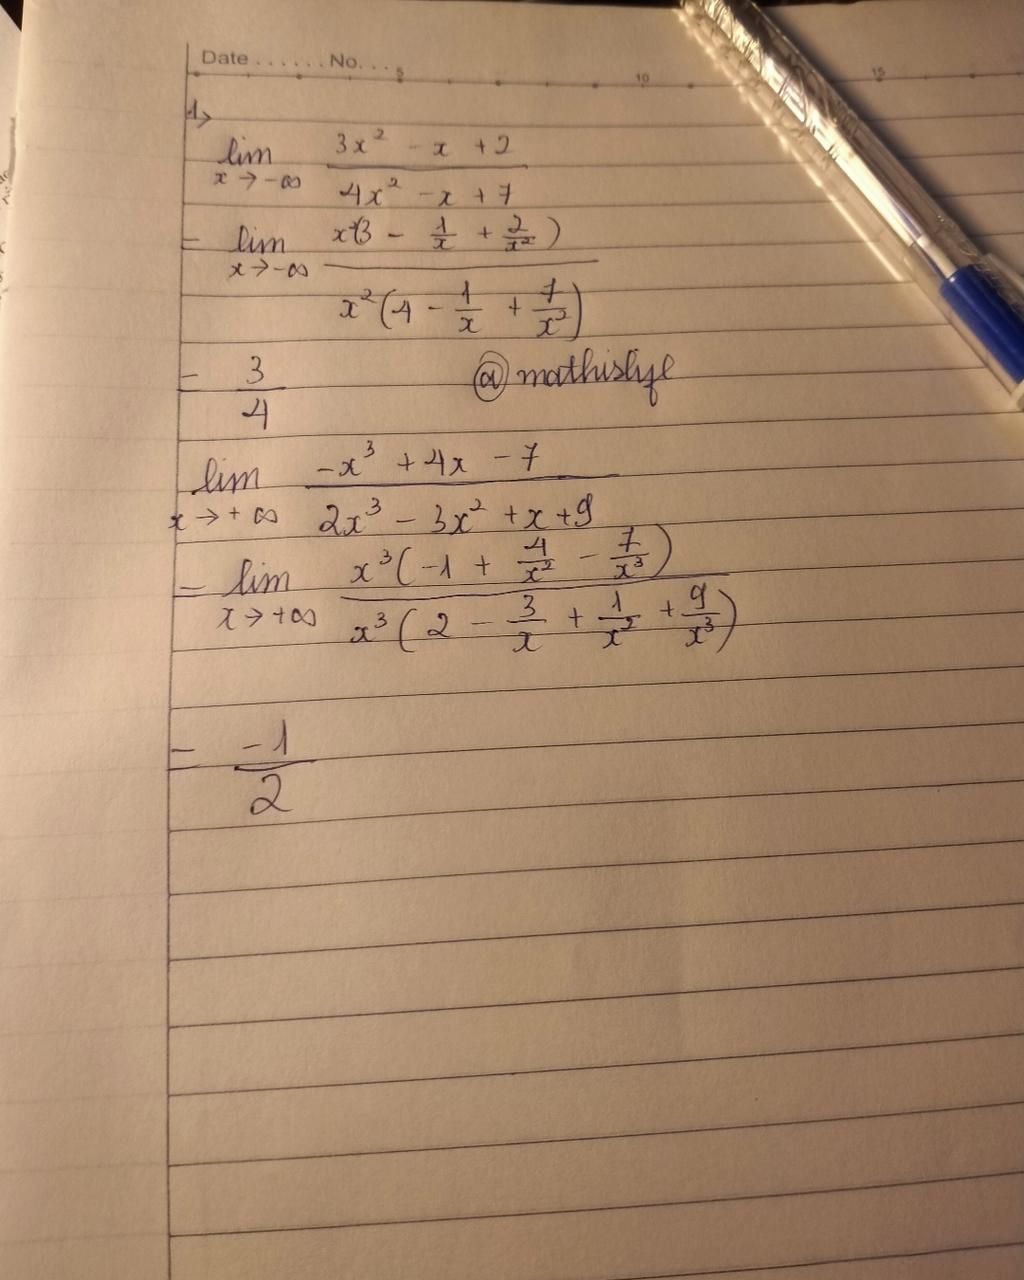 Date ...... No. ...
5 10 15
1>
lim x→-∞ (3x² - x + 2)/(4x² - x + 7)
= lim x→-∞ x²(3 - 1/x + 2/x²)/x²(4 - 1/x + 7/x²)
= 3/4
@mathislife
lim x→+∞ (-x³ + 4x - 7)/(2x³ - 3x² + x + 9)
= lim x→+∞ x³(-1 + 4/x² - 7/x³)/x³(2 - 3/x + 1/x² + 9/x³)
= -1/2